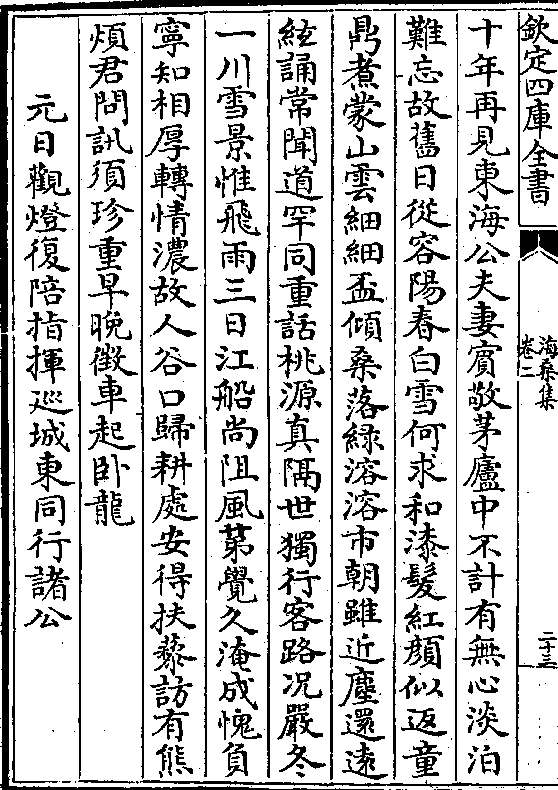 欽定四庫全書
海桑集
卷二
二十三
十年再見東海公夫妻賓敬茅廬中不計有無心淡泊
難忘故舊日從容陽春白雪何求和漆髮紅顏似返童
鼎煮蒙山雲細細盃傾桑落緑溶溶市朝雖近塵還逺
絃誦常聞道罕同重話桃源真隔世獨行客路况嚴冬
一川雪景惟飛雨三日江船尚阻風苐覺久淹成愧負
寧知相厚轉情濃故人谷口歸耕處安得扶藜訪有熊
煩君問訊須珍重早晚徴車起卧龍
元日觀燈復陪指揮廵城東同行諸公